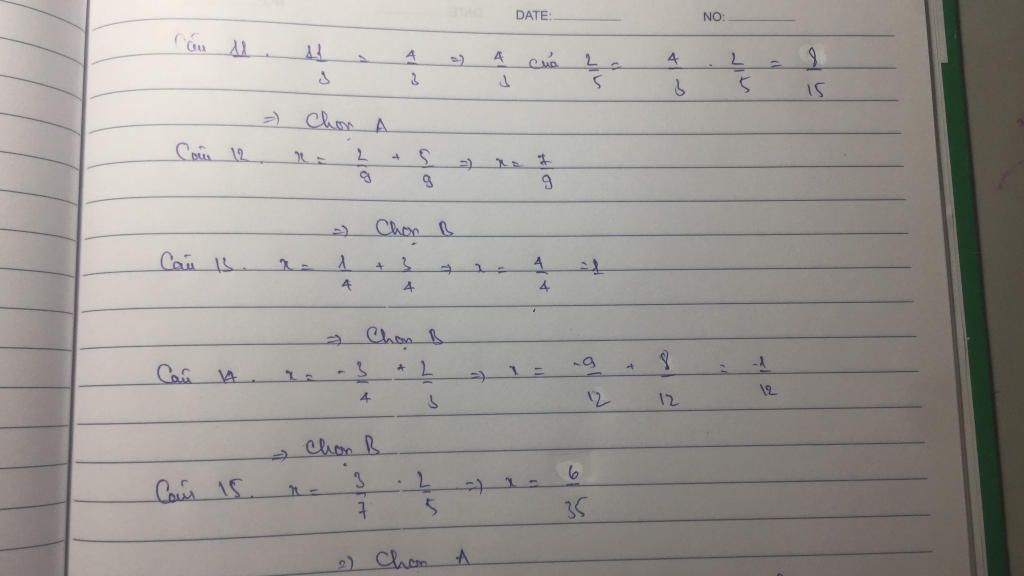 DATE: NO:
Câu 11. 11/3 = 4/3 => 4/3 của 2/5 = 4/3 . 2/5 = 8/15
=> Chọn A
Câu 12. x = 2/9 + 5/9 => x = 7/9
=> Chọn B
Câu 13. x = 1/4 + 3/4 => x = 4/4 = 1
=> Chọn B
Câu 14. x = -3/4 + 2/3 => x = -9/12 + 8/12 = -1/12
=> Chọn B
Câu 15. x = 3/7 . 2/5 => x = 6/35
=> Chọn A